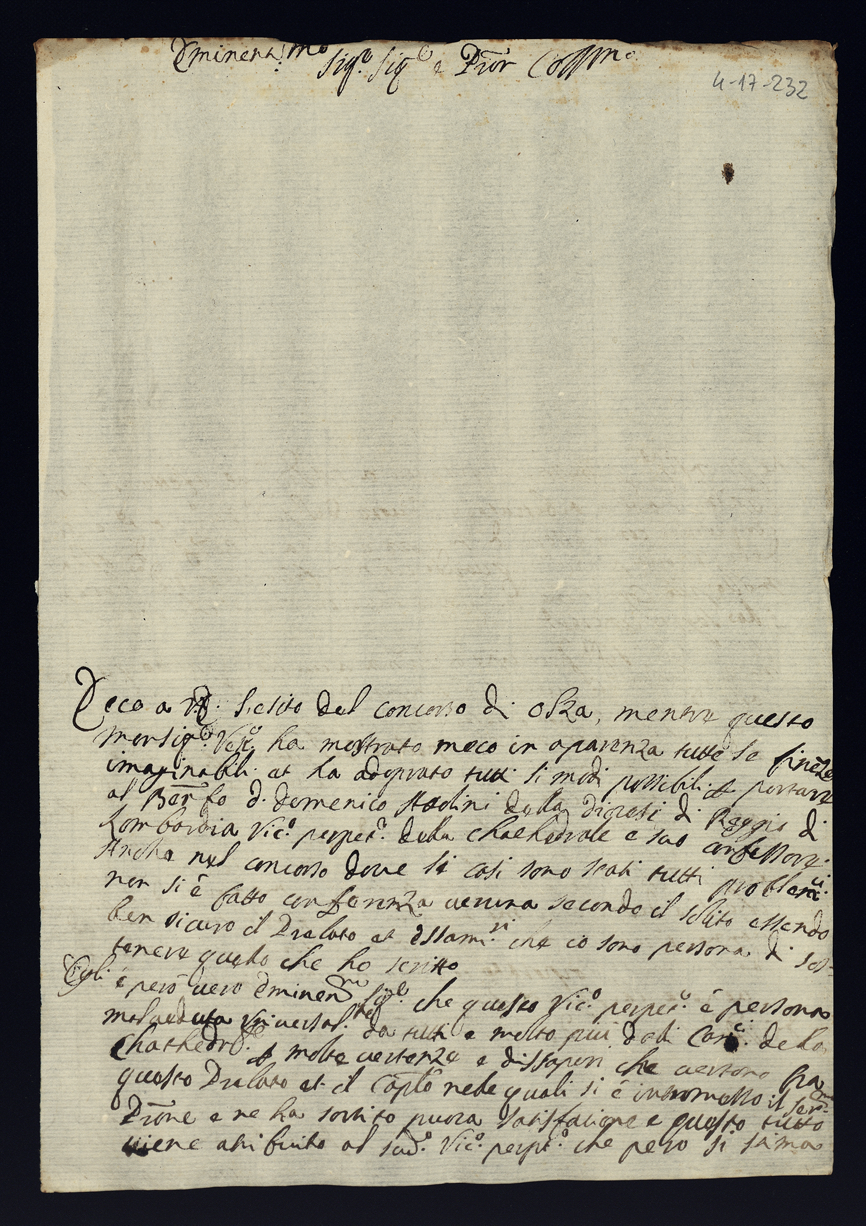 Eminent.mo
Sig.r Sig.e e Pron Coll.mo
4-17-232
Ecco a VE. l'esito del concorso di Ostia, mentre questo
Monsig.r Vesc.o ha mostrato meco in aparenza tutte le finezze
imaginabili et ha adoprato tutti li modi possibili portare
al Ben.fo D. Domenico della diocesi di Reggio di
Lombardia Vic.o perpet.o della Chathedrale e suo confessore.
Anche nel concorso dove li casi sono stati tutti problemci
non si è fatto conferenza veruna secondo il solito essendo
ben sicuro il Prelato et Essami.ri che io sono persona di sos-
tenere quello che ho scritto
Egli è però vero Eminen.mo Sig.e che questo Vic.o perpet.o è persona
malveduta universal.te da tutti e molto più dali Can.ci dela
Chathedr.e molte vertenze e dissapori che vertono fra
questo Prelato et il Caplo nele quali si è intromesso il Ser.mo
Prone e ne ha sortito puoca satisfatione e questo tutto
viene atribuito al sud.o Vic.o perpet.o che pero si stima